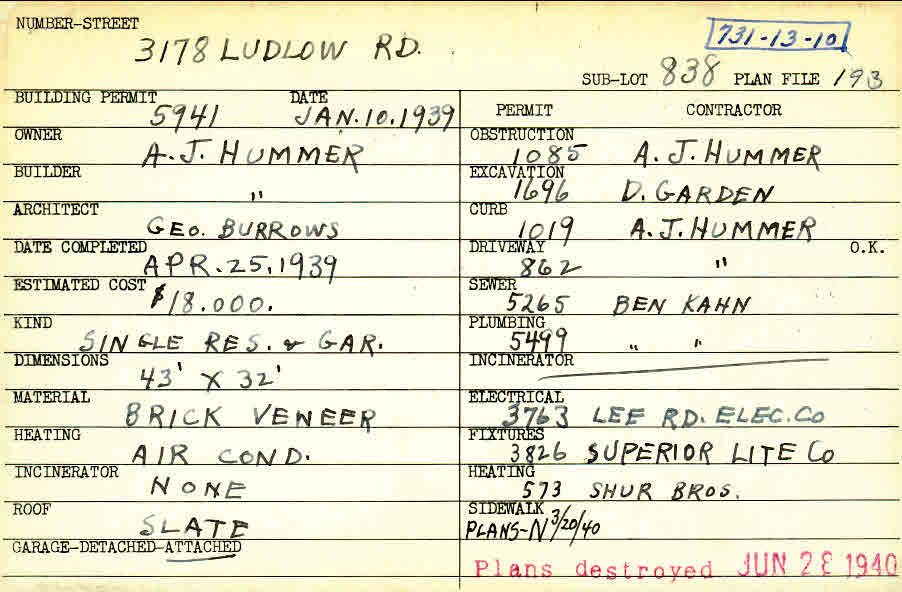 NUMBER-STREET
3178 LUDLOW RD.
731-13-10
SUB-LOT 838 PLAN FILE 193
BUILDING PERMIT DATE
5941 JAN.10.1939
OWNER
A.J. HUMMER
BUILDER
"
ARCHITECT
GEO. BURROWS
DATE COMPLETED
APR.25,1939
ESTIMATED COST
$18.000.
KIND
SINGLE RES. & GAR.
DIMENSIONS
43' X 32'
MATERIAL
BRICK VENEER
HEATING
AIR COND.
INCINERATOR
NONE
ROOF
SLATE
GARAGE-DETACHED-ATTACHED
PERMIT CONTRACTOR
OBSTRUCTION
1085 A.J. HUMMER
EXCAVATION
1696 D. GARDEN
CURB
1019 A.J. HUMMER
DRIVEWAY O.K.
862 "
SEWER
5265 BEN KAHN
PLUMBING
5499 " "
INCINERATOR
ELECTRICAL
3763 LEE RD. ELEC.CO
FIXTURES
3826 SUPERIOR LITE CO
HEATING
573 SHUR BROS.
SIDEWALK
PLANS-N 3/20/40
Plans destroyed JUN 28 1940